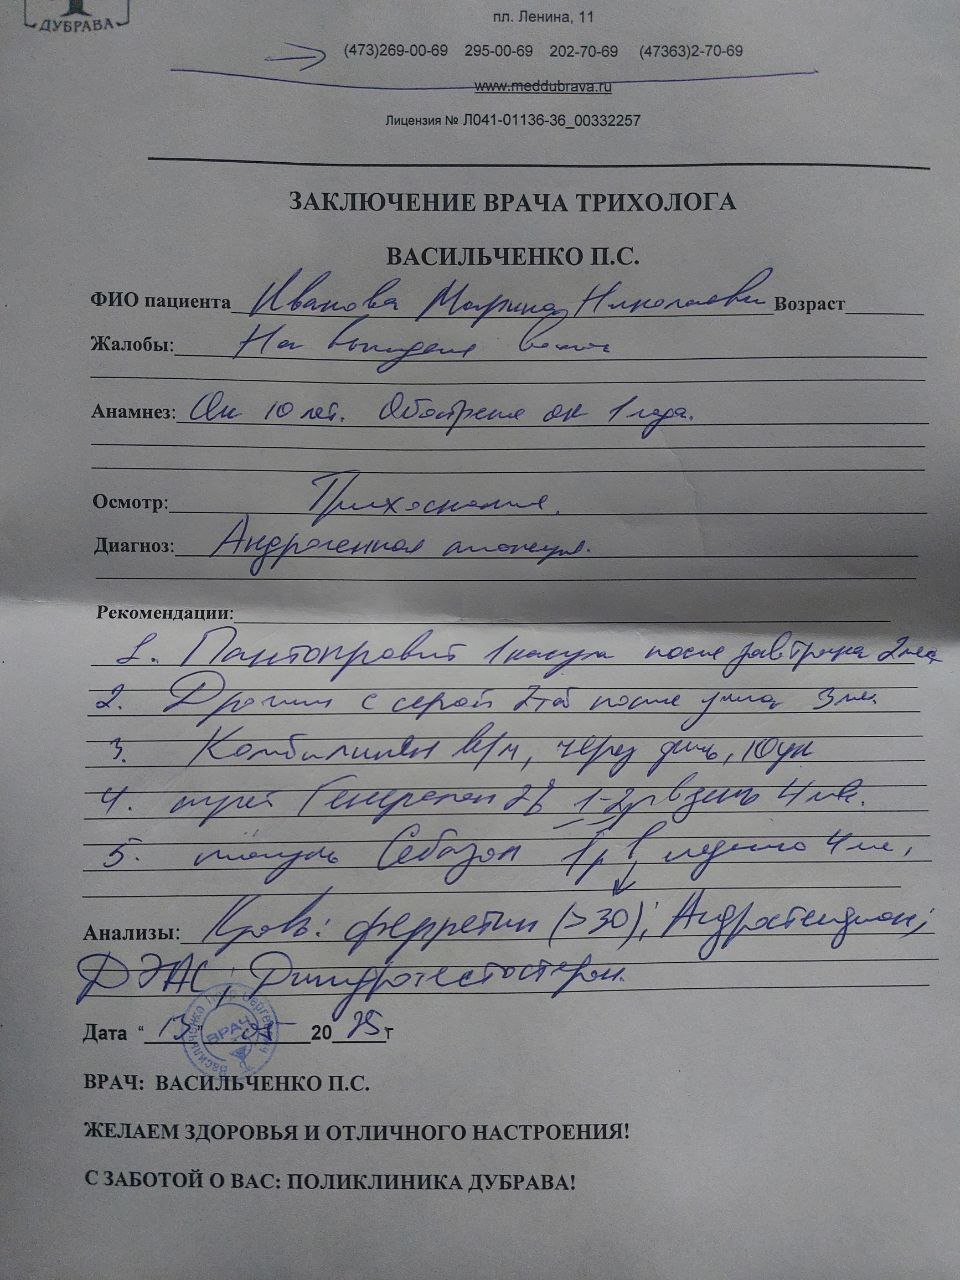 ДУБРАВА
пл. Ленина, 11
(473)269-00-69 295-00-69 202-70-69 (47363)2-70-69
www.meddubrava.ru
Лицензия № Л041-01136-36_00332257
ЗАКЛЮЧЕНИЕ ВРАЧА ТРИХОЛОГА
ВАСИЛЬЧЕНКО П.С.
ФИО пациента Иванова Марина Николаевна Возраст
Жалобы: На выпадение волос
Анамнез: Ок 10 лет. Обострение ок 1 года.
Осмотр: Трихоскопия.
Диагноз: Андрогенная алопеция.
Рекомендации:
1. Пантопровит 1 капсула после завтрака 2 мес
2. с серой 2 таб после ужина 3 м.
3. Комбилипен в/м, через день, 10 ук
4. спрей Генеролон 2% 1-2 р в день 4 мес.
5. шампунь Себозол 1 р в неделю 4 м,
Анализы: Кровь: ферретин (>30); Андростендион;
ДЭАС; Дигидротестостерон.
Дата “13” 05 2025г
Васильченко Сергеевич ВРАЧ
ВРАЧ: ВАСИЛЬЧЕНКО П.С.
ЖЕЛАЕМ ЗДОРОВЬЯ И ОТЛИЧНОГО НАСТРОЕНИЯ!
С ЗАБОТОЙ О ВАС: ПОЛИКЛИНИКА ДУБРАВА!